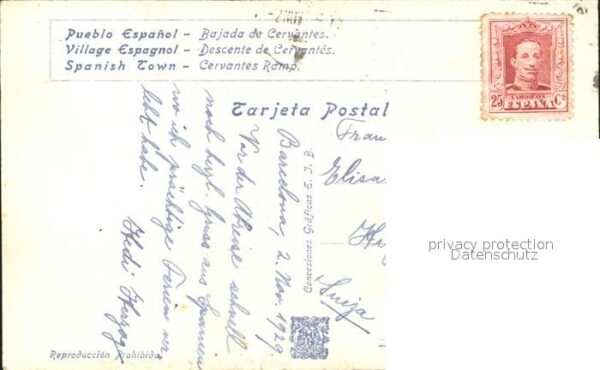 Pueblo Español - Bajada de Cervantes.
Village Espagnol - Descente de Cervantés.
Spanish Town - Cervantes Ramp.
25 Cs
CORREOS
ESPAÑA
Tarjeta Postal
Barcelona, 2. Nov. 1929.
Vor der Abreise schnell
noch herzl. Gruss aus Spanien,
wo ich prächtige Ferien ver-
lebt habe.
Hedi Herzog
Concesionarios Gráficos E. I. B.
Frau
Elisa
Suiza
Reproducción Prohibida
privacy protection
Datenschutz